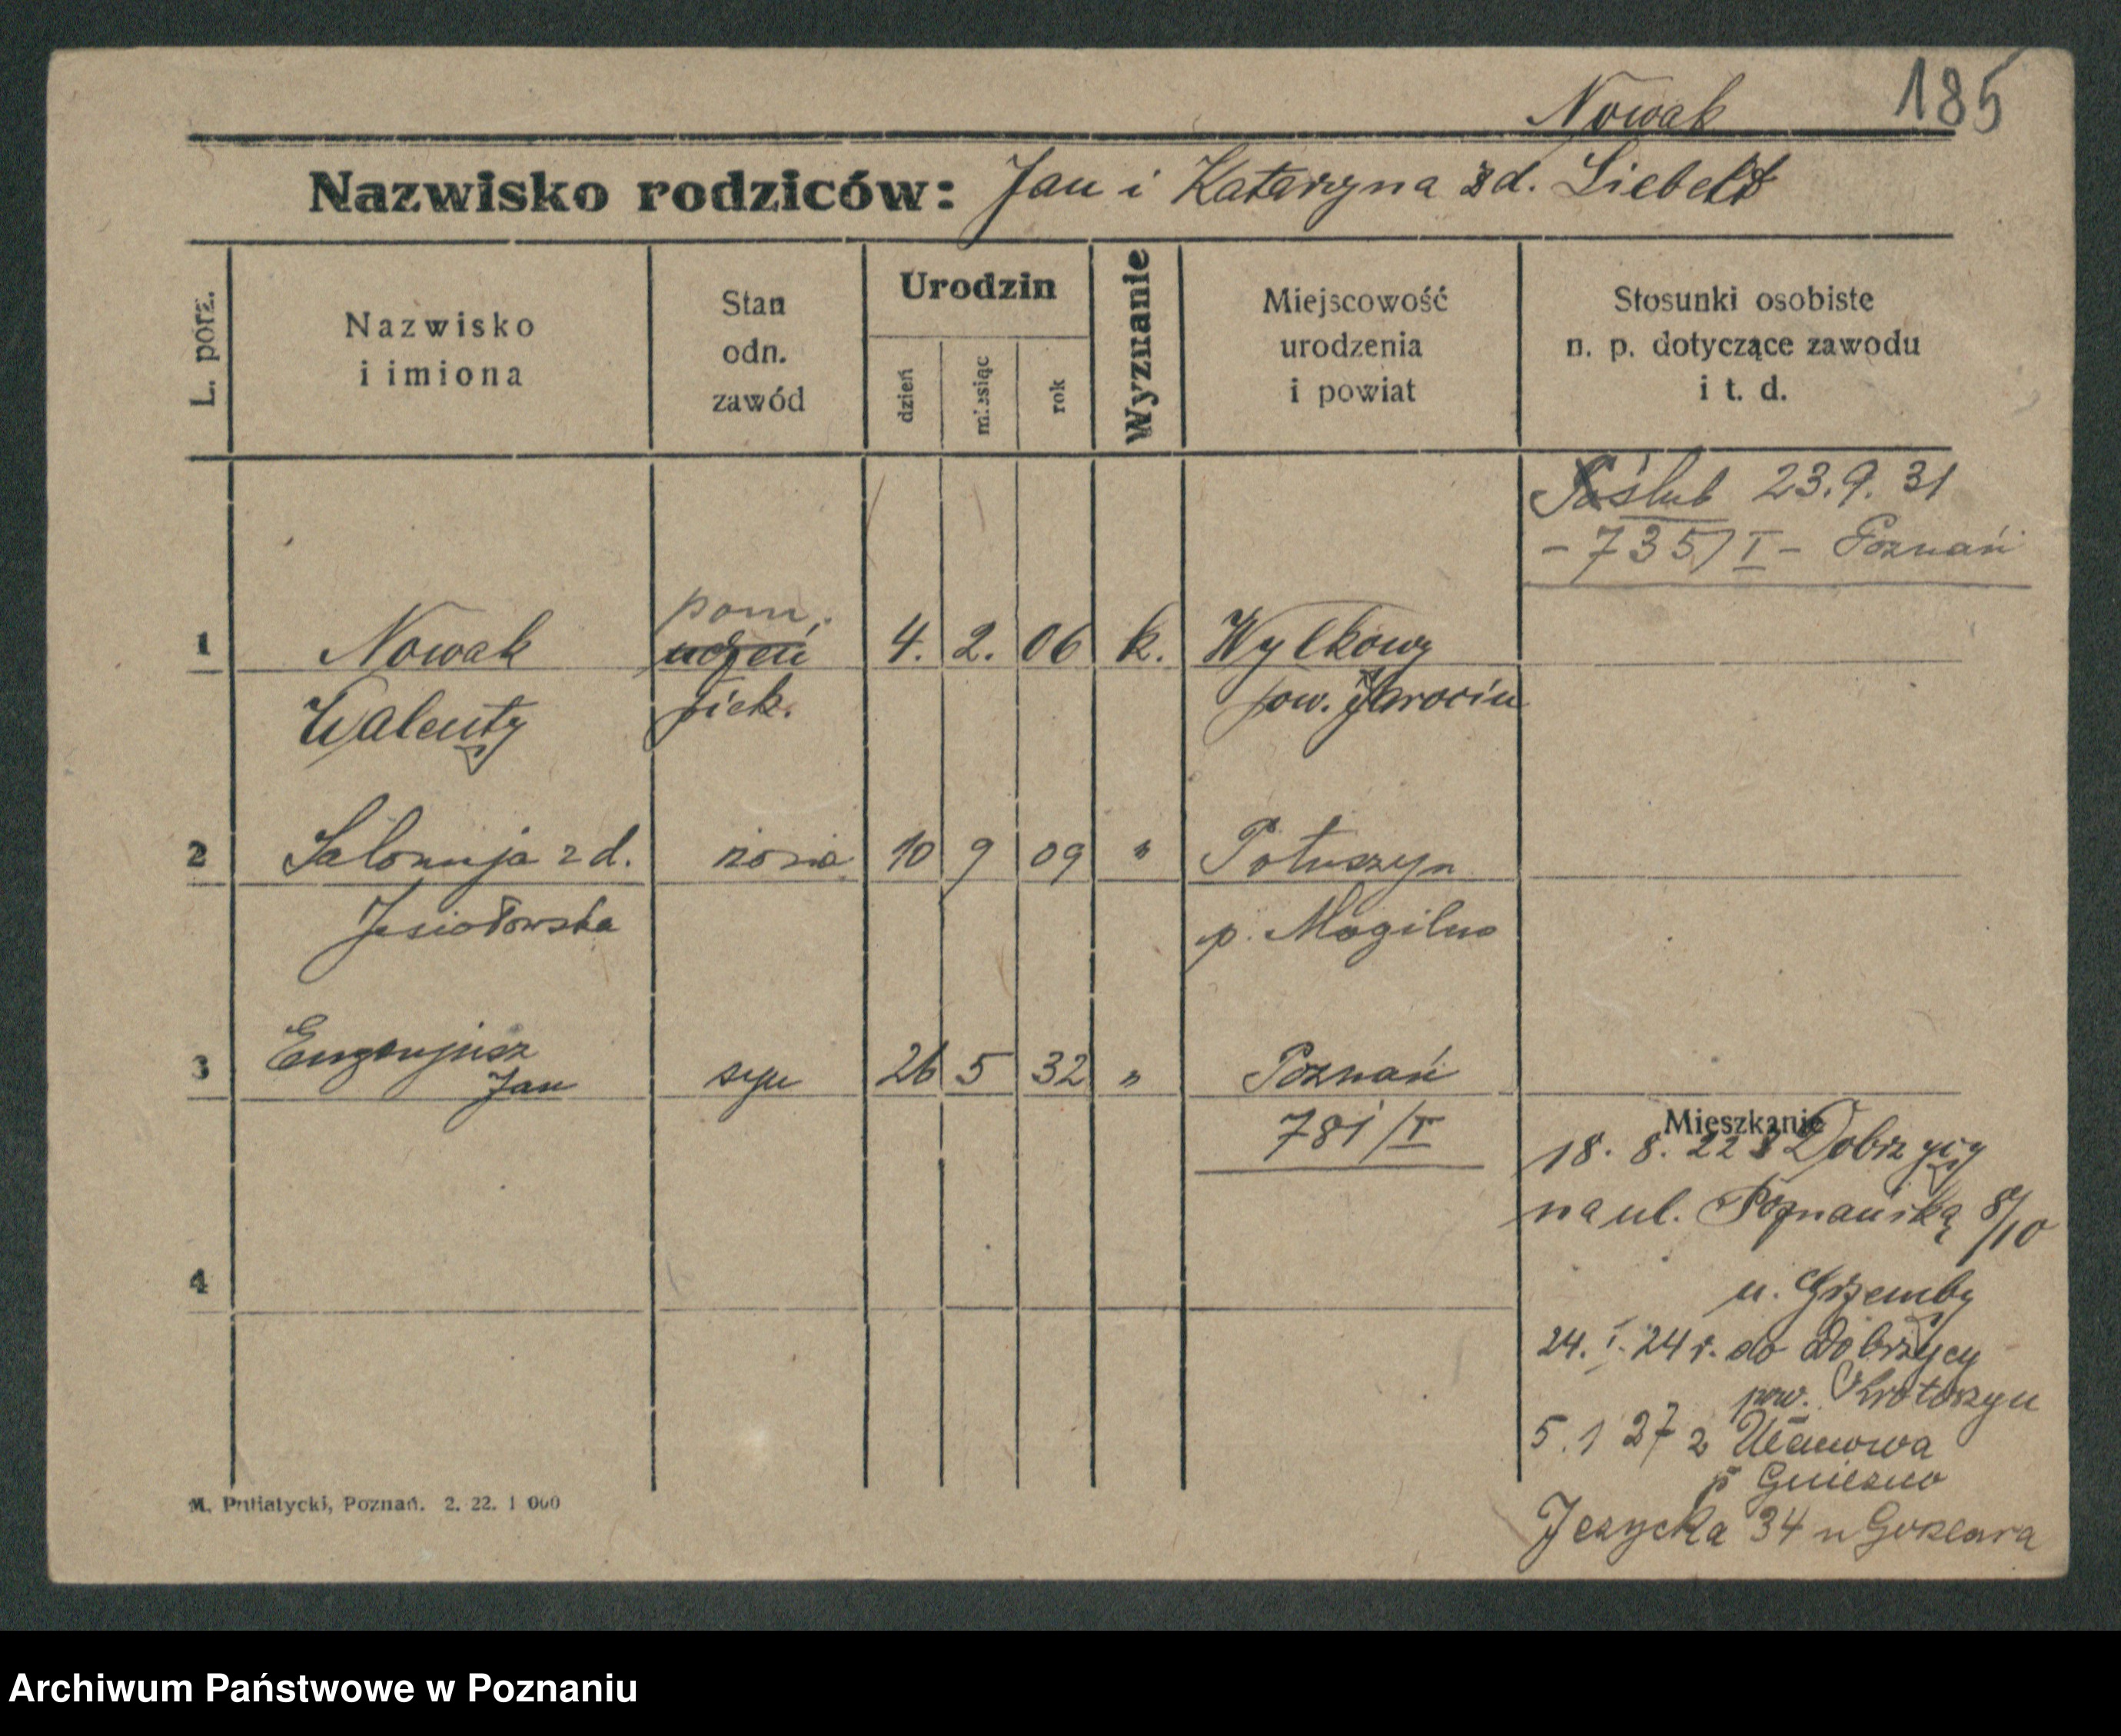 185
Nowak
Nazwisko rodziców: Jan i Katarzyna zd. Liebelt
L. porz.
Nazwisko
i imiona
Stan
odn.
zawód
Urodzin
dzień
miesiąc
rok
Wyznanie
Miejscowość
urodzenia
i powiat
Stosunki osobiste
n. p. dotyczące zawodu
i t. d.
ślub 23.9.31
- 735/I - Poznań
pom.
1 Nowak uczeń 4. 2. 06 k. Wylkowy
Walenty piek. pow. Jarocin
2 Salomeja z d. żona 10 9 09 " Potuszyn
Jesiołowska p. Mogilno
3 Eugenjusz
Jan syn 26 5 32 " Poznań
781/I
4
Mieszkanie
18. 8. 22 z Dobrzycy
na ul. Poznańską 8/10
u. Grzemby
24. I. 24 r. do Dobrzycy
pow. Krotoszyn
5. 1 27 z
p Gniezno
Jezycka 34 u
M. Putiatycki, Poznań. 2. 22. 1 000
Archiwum Państwowe w Poznaniu